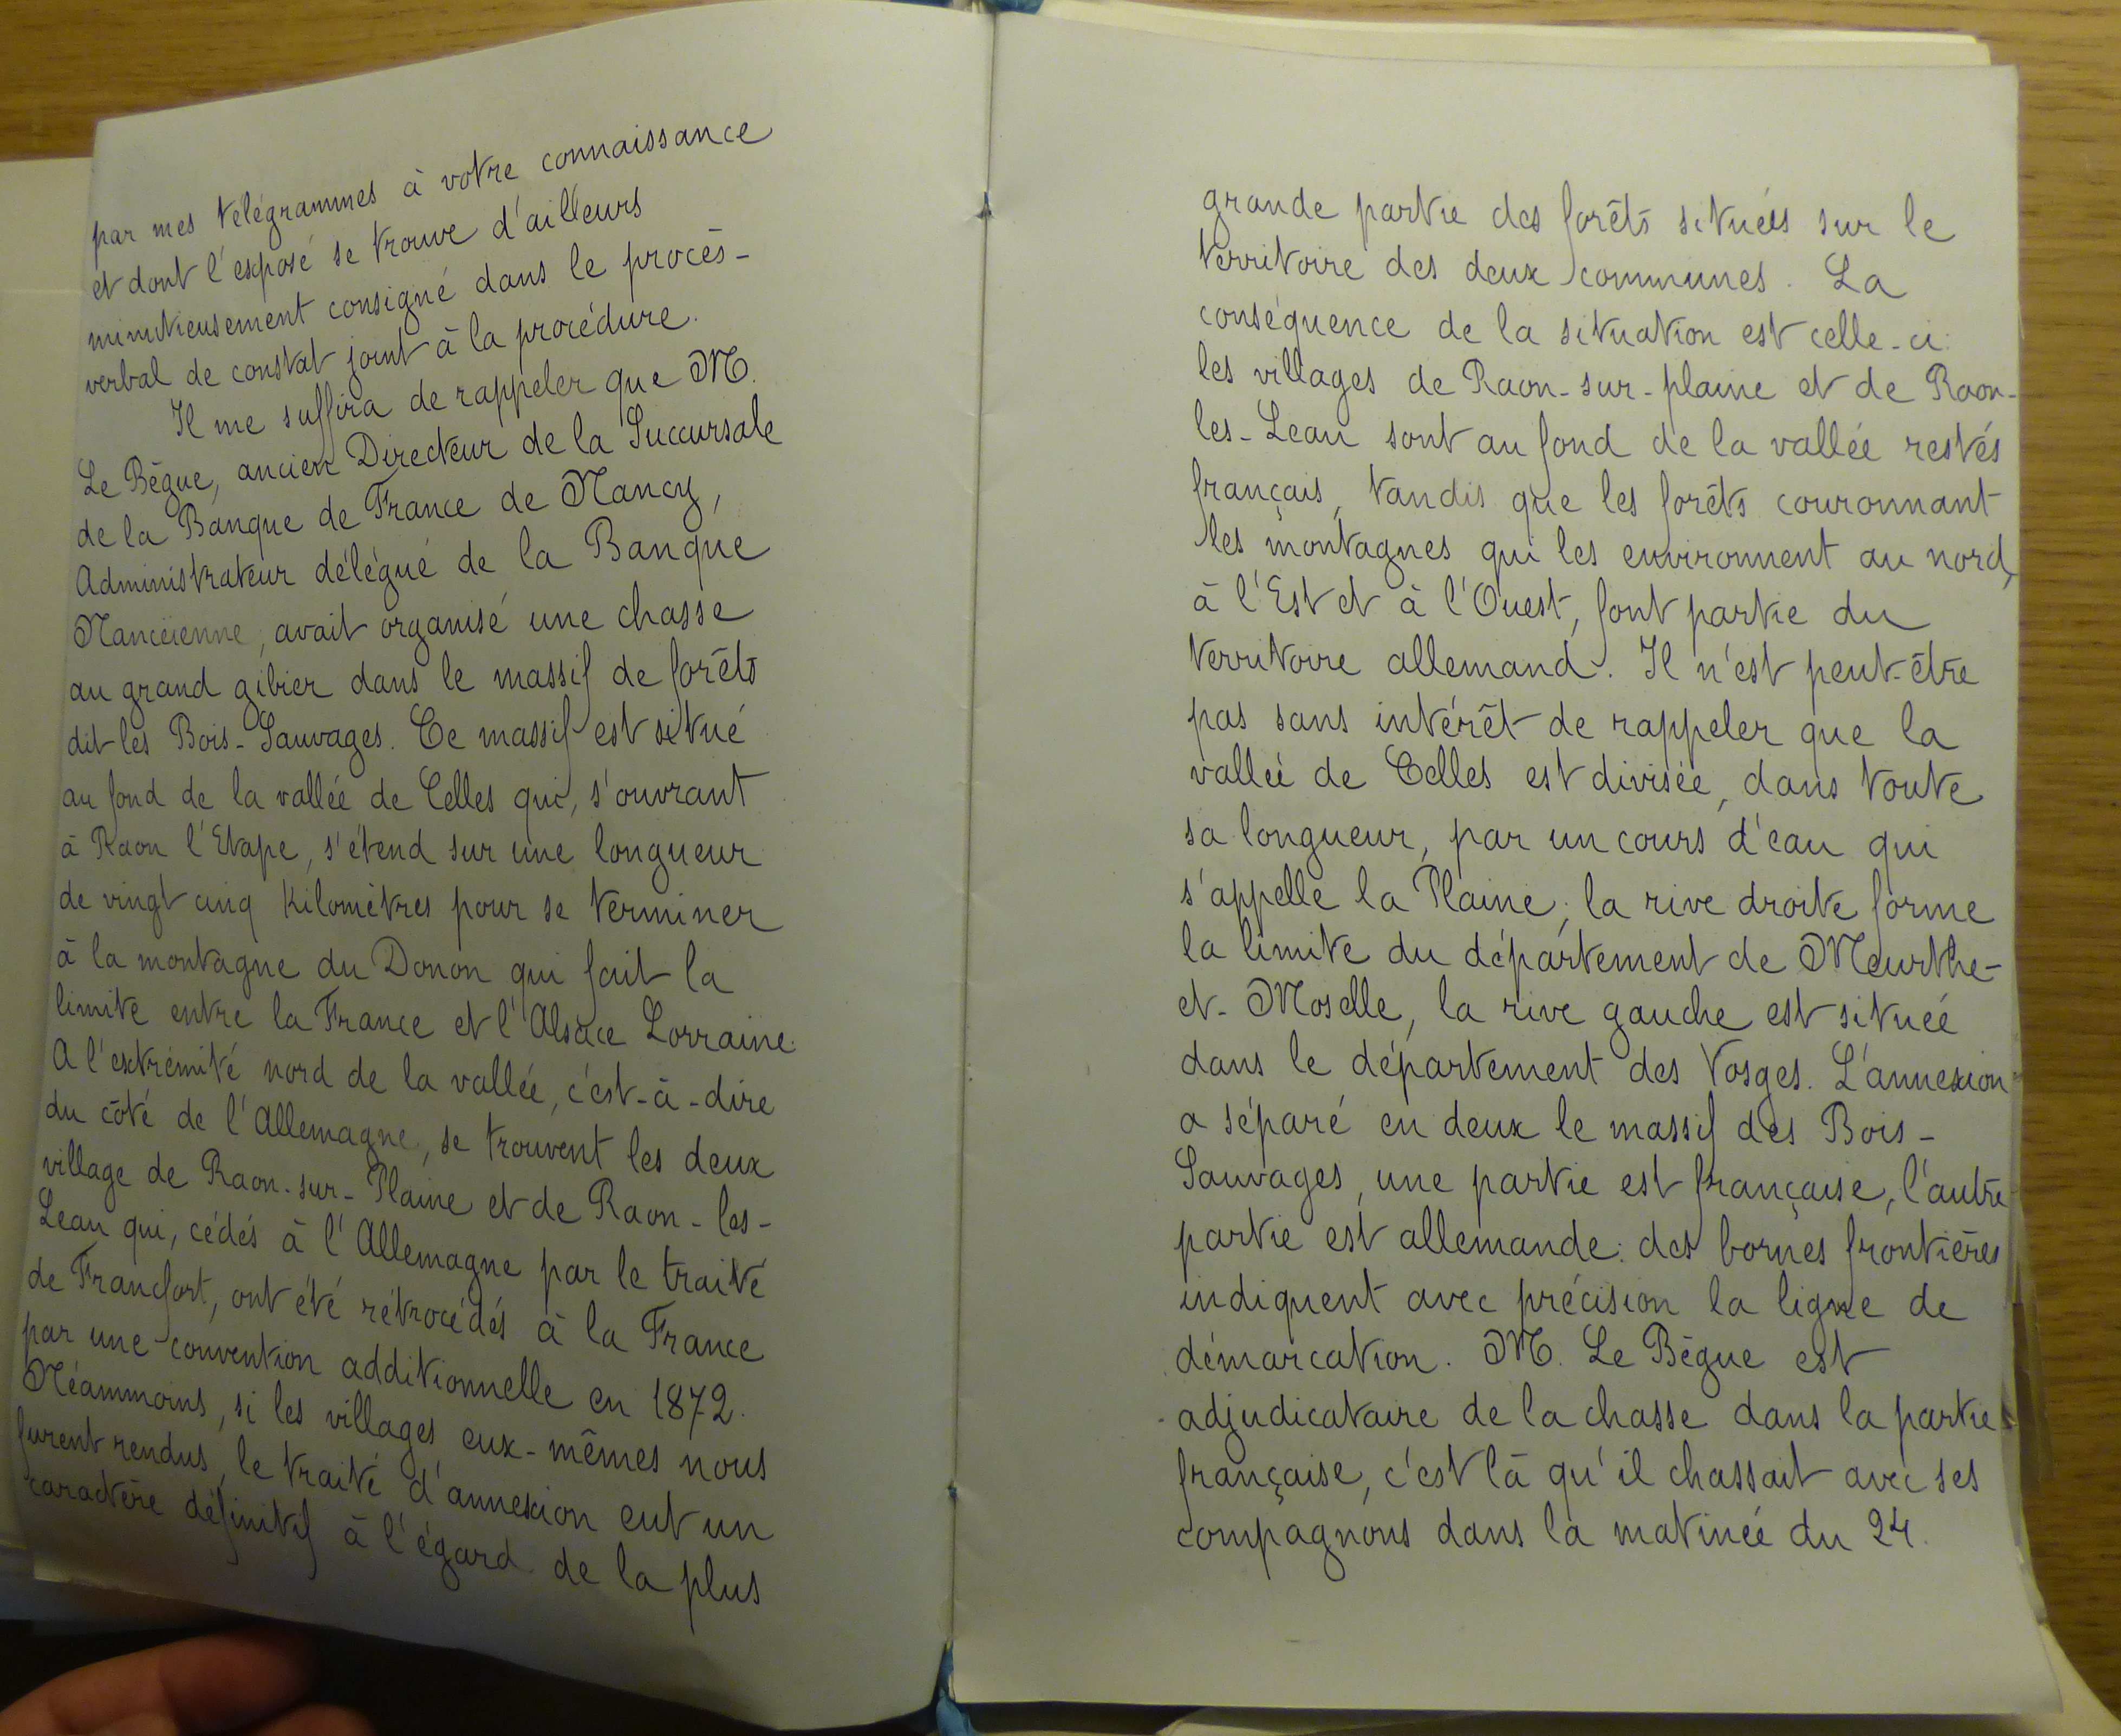 par mes télégrammes à votre connaissance
et dont l'exposé se trouve d'ailleurs
minutieusement consigné dans le procès-
verbal de constat joint à la procédure.
Il me suffira de rappeler que M.
Le Bègue, ancien Directeur de la Succursale
de la Banque de France de Nancy,
Administrateur délégué de la Banque
Nancéienne, avait organisé une chasse
au grand gibier dans le massif de forêts
dit les Bois-Sauvages. Ce massif est situé
au fond de la vallée de Celles qui, s'ouvrant
à Raon l'Etape, s'étend sur une longueur
de vingt cinq Kilomètres pour se terminer
à la montagne du Donon qui fait la
limite entre la France et l'Alsace Lorraine.
A l'extrémité nord de la vallée, c'est-à-dire
du côté de l'Allemagne, se trouvent les deux
village de Raon-sur-Plaine et de Raon-les-
Leau qui, cédés à l'Allemagne par le traité
de Francfort, ont été rétrocédés à la France
par une convention additionnelle en 1872.
Néammoins, si les villages eux-mêmes nous
furent rendus, le traité d'annexion eut un
caractère définitif à l'égard de la plus
grande partie des forêts situées sur le
territoire des deux communes. La
conséquence de la situation est celle-ci:
les villages de Raon-sur-plaine et de Raon-
les-Leau sont au fond de la vallée restés
français, tandis que les forêts couronnant
les montagnes qui les environnent au nord,
à l'Est et à l'Ouest, font partie du
territoire allemand. Il n'est peut-être
pas sans intérêt de rappeler que la
vallée de Celles est divisée, dans toute
sa longueur, par un cours d'eau qui
s'appelle la Plaine; la rive droite forme
la limite du département de Meurthe-
et-Moselle, la rive gauche est située
dans le département des Vosges. L'annexion
a séparé en deux le massif des Bois-
Sauvages, une partie est française, l'autre
partie est allemande: des bornes frontières
indiquent avec précision la ligne de
démarcation. M. Le Bègue est
adjudicataire de la chasse dans la partie
française, c'est là qu'il chassait avec ses
compagnons dans la matinée du 24.